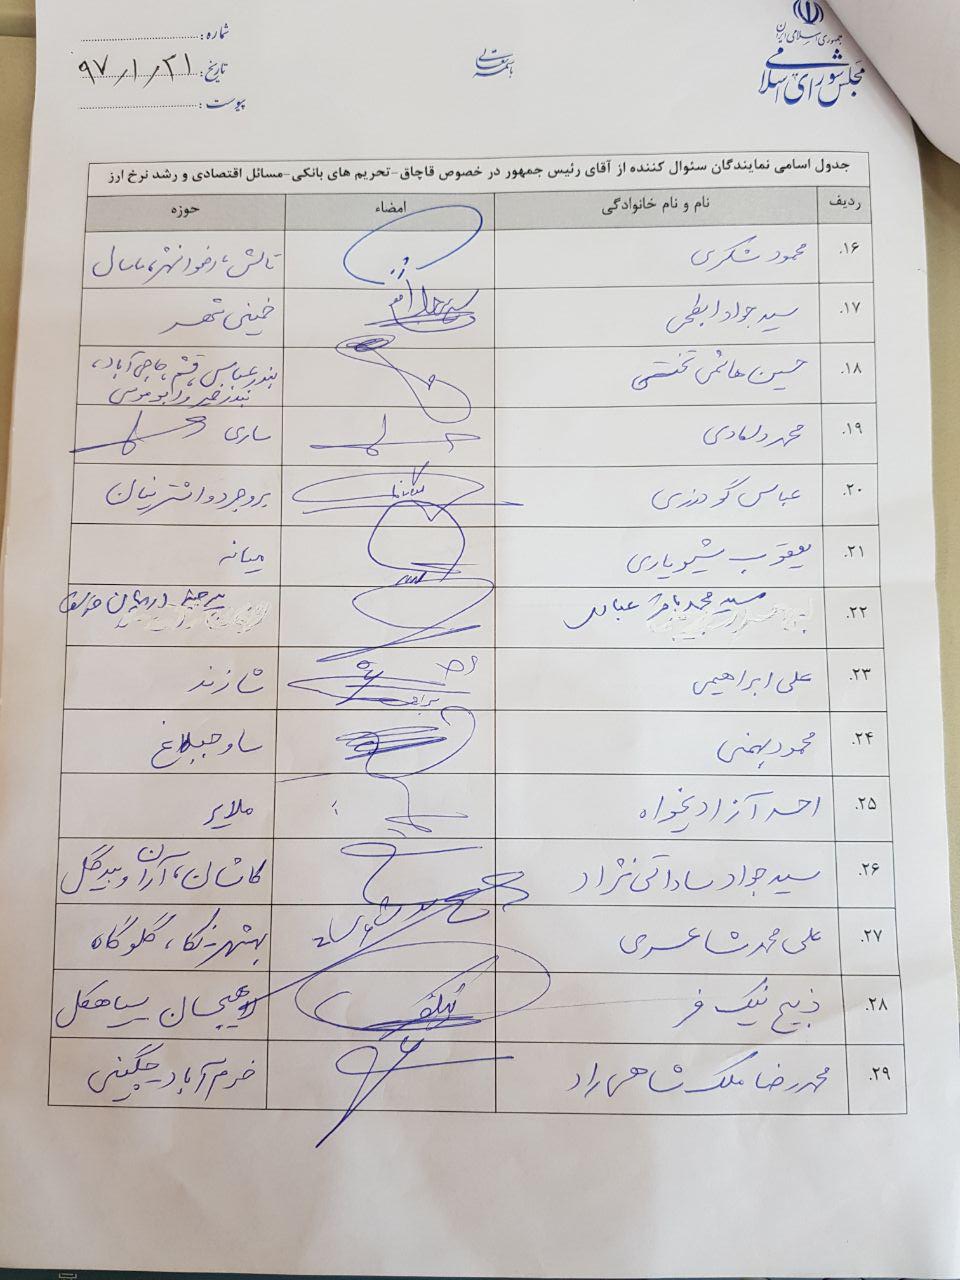 جمهوری اسلامی ایران
مجلس شورای اسلامی
باسمه تعالی
شماره:
تاریخ: ۹۷/۱/۲۱
پیوست:
جدول اسامی نمایندگان سئوال کننده از آقای رئیس جمهور در خصوص قاچاق-تحریم های بانکی-مسائل اقتصادی و رشد نرخ ارز
ردیف نام و نام خانوادگی امضاء حوزه
۱۶. محمود شکری تالش، رضوانشهر، ماسال
۱۷. سید جواد ابطحی خمینی شهر
۱۸. حسین هاشمی تختی بندرعباس، قشم، حاجی آباد،
خمیر و ابوموسی
۱۹. محمد دامادی ساری
۲۰. عباس گودرزی بروجرد و اشترینان
۲۱. یعقوب شیویاری میانه
۲۲. سید محمد باقر عبادی بیرجند درمیان خوسف
۲۳. علی ابراهیمی شازند
۲۴. محمود بهمنی ساوجبلاغ
۲۵. احد آزادیخواه ملایر
۲۶. سید جواد ساداتی نژاد کاشان، آران و بیدگل
۲۷. علی محمد شاعری بهشهر، نکا، گلوگاه
۲۸. ذبیح نیک فر لاهیجان سیاهکل
۲۹. محمدرضا ملک شاهی راد خرم آباد چگینی